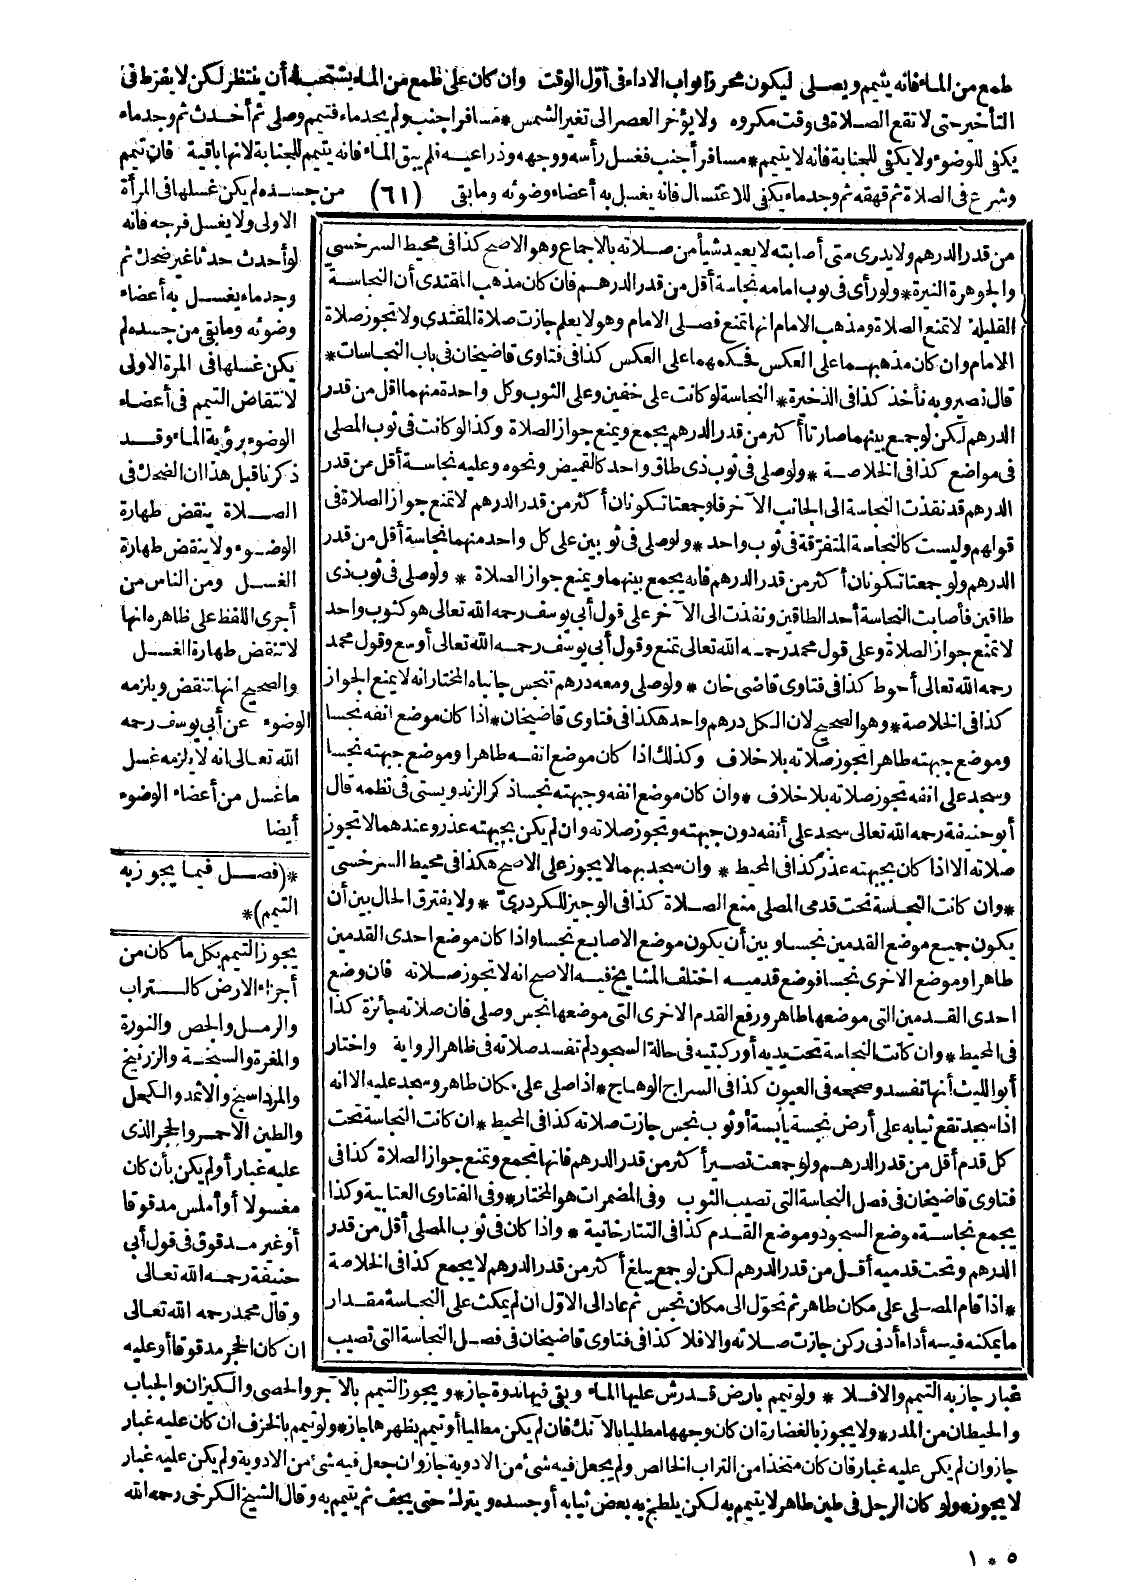 طمع من الماء فانه يتيمم ويصلى ليكون محرزا ثواب الاداء فى أول الوقت وان كان على طمع من الماء يستحب له أن ينتظر لكن لا يفرط فى
التأخير حتى لا تقع الصلاة فى وقت مكروه ولا يؤخر العصر الى تغير الشمس * مسافر اجنب ولم يجد ماء فتيمم وصلى ثم أحدث ثم وجد ماء
يكفى للوضوء ولا يكفى للجنابة فانه لا يتيمم * مسافر أجنب فغسل رأسه ووجهه وذراعيه فلم يبق الماء فانه يتيمم للجنابة لانها باقية فان تيمم
وشرع فى الصلاة ثم قهقه ثم وجد ماء يكفى للاغتسال فانه يغسل به أعضاء وضوئه وما بقى (٦١) من جسده لم يكن غسلها فى المرأة
الاولى ولا يغسل فرجه فانه
لو أحدث حدثا غير ضحك ثم
وجد ماء يغسل به أعضاء
وضوئه وما بقى من جسده لم
يكن غسلها فى المرة الاولى
لانتقاض التيمم فى أعضاء
الوضوء برؤية الماء وقد
ذكرنا قبل هذا ان الضحك فى
الصلاة ينقض طهارة
الوضوء ولا ينقض طهارة
الغسل ومن الناس من
أجرى اللفظ على ظاهره انها
لا تنقض طهارة الغسل
والصحيح انها تنقض ويلزمه
الوضوء عن أبى يوسف رحمه
الله تعالى انه لا يلزمه غسل
ما غسل من أعضاء الوضوء
أيضا
*(فصل فيما يجوز به
التيمم)*
يجوز التيمم بكل ما كان من
أجزاء الارض كالتراب
والرمل والجص والنورة
والمغرة والسبخة والزرنيخ
والمرداسنج والاثمد والكحل
والطين الاحمر والحجر الذى
عليه غبار أو لم يكن بأن كان
مغسولا أو أملس مدقوقا
أو غير مدقوق فى قول أبى
حنيفة رحمه الله تعالى
وقال محمد رحمه الله تعالى
ان كان الحجر مدقوقا أو عليه
من قدر الدرهم ولا يدرى متى أصابته لا يعيد شيأ من صلاته بالاجماع وهو الاصح كذا فى محيط السرخسى
والجوهرة النيرة * ولو رأى فى ثوب امامه نجاسة أقل من قدر الدرهم فان كان مذهب المقتدى أن النجاسة
القليلة لا تمنع الصلاة ومذهب الامام انها تمنع فصلى الامام وهو لا يعلم جازت صلاة المقتدى ولا تجوز صلاة
الامام وان كان مذهبهما على العكس فحكمهما على العكس كذا فى فتاوى قاضيخان فى باب النجاسات *
قال نصير وبه نأخذ كذا فى الذخيرة * النجاسة لو كانت على خفين وعلى الثوب وكل واحدة منهما اقل من قدر
الدرهم لكن لو جمع بينهما صارتا أكثر من قدر الدرهم يجمع ويمنع جواز الصلاة وكذا لو كانت فى ثوب المصلى
فى مواضع كذا فى الخلاصة * ولو صلى فى ثوب ذى طاق واحد كالقميص ونحوه وعليه نجاسة أقل من قدر
الدرهم قد نفذت النجاسة الى الجانب الآخر فلو جمعتا تكونان أكثر من قدر الدرهم لا تمنع جواز الصلاة فى
قولهم وليست كالنجاسة المتفرقة فى ثوب واحد * ولو صلى فى ثوبين على كل واحد منهما نجاسة أقل من قدر
الدرهم ولو جمعتا تكونان أكثر من قدر الدرهم فانه يجمع بينهما ويمنع جواز الصلاة * ولو صلى فى ثوب ذى
طاقين فأصابت النجاسة أحد الطاقين ونفذت الى الآخر على قول أبى يوسف رحمه الله تعالى هو كثوب واحد
لا تمنع جواز الصلاة وعلى قول محمد رحمه الله تعالى تمنع وقول أبى يوسف رحمه الله تعالى أوسع وقول محمد
رحمه الله تعالى أحوط كذا فى فتاوى قاضى خان * ولو صلى ومعه درهم تنجس جانباه المختار انه لا يمنع الجواز
كذا فى الخلاصة * وهو الصحيح لان الكل درهم واحد هكذا فى فتاوى قاضيخان * اذا كان موضع انفه نجسا
وموضع جبهته طاهرا تجوز صلاته بلا خلاف وكذلك اذا كان موضع انفه طاهرا وموضع جبهته نجسا
وسجد على انفه تجوز صلاته بلا خلاف * وان كان موضع انفه وجبهته نجسا ذكر الزندويستى فى نظمه قال
أبو حنيفة رحمه الله تعالى سجد على أنفه دون جبهته وتجوز صلاته وان لم يكن بجبهته عذر وعندهما لا تجوز
صلاته الا اذا كان بجبهته عذر كذا فى المحيط * وان سجد بهما لا يجوز على الاصح هكذا فى محيط السرخسى
* وان كانت النجاسة تحت قدمى المصلى منع الصلاة كذا فى الوجيز للكردرى * ولا يفترق الحال بين أن
يكون جميع موضع القدمين نجسا وبين أن يكون موضع الاصابع نجسا واذا كان موضع احدى القدمين
طاهرا وموضع الاخرى نجسا فوضع قدميه اختلف المشايخ فيه الاصح انه لا تجوز صلاته فان وضع
احدى القدمين التى موضعها طاهر ورفع القدم الاخرى التى موضعها نجس وصلى فان صلاته جائزة كذا
فى المحيط * وان كانت النجاسة تحت يديه أو ركبتيه فى حالة السجود لم تفسد صلاته فى ظاهر الرواية واختار
أبو الليث أنها تفسد وصححه فى العيون كذا فى السراج الوهاج * اذا صلى على مكان طاهر وسجد عليه الا انه
اذا سجد تقع ثيابه على أرض نجسة يابسة أو ثوب نجس جازت صلاته كذا فى المحيط * ان كانت النجاسة تحت
كل قدم أقل من قدر الدرهم ولو جمعت تصير أكثر من قدر الدرهم فانها تجمع وتمنع جواز الصلاة كذا فى
فتاوى قاضيخان فى فصل النجاسة التى تصيب الثوب وفى المضمرات هو المختار * وفى الفتاوى العتابية وكذا
يجمع نجاسة موضع السجود وموضع القدم كذا فى التتارخانية * واذا كان فى ثوب المصلى أقل من قدر
الدرهم وتحت قدميه أقل من قدر الدرهم لكن لو جمع يبلغ أكثر من قدر الدرهم لا يجمع كذا فى الخلاصة
* اذا قام المصلى على مكان طاهر ثم تحول الى مكان نجس ثم عاد الى الاول ان لم يمكث على النجاسة مقدار
ما يمكنه فيه أداء أدنى ركن جازت صلاته والا فلا كذا فى فتاوى قاضيخان فى فصل النجاسة التى تصيب
غبار جاز به التيمم والا فلا * ولو تيمم بارض قد رش عليها الماء وبقى فيها ندوة جاز * ويجوز التيمم بالآجر والحصى والكيزان والحباب
والحيطان من المدر * ولا يجوز بالغضارة ان كان وجهها مطليا بالآنك فان لم يكن مطليا أو تيمم بظهرها جاز * ولو تيمم بالخزف ان كان عليه غبار
جاز وان لم يكن عليه غبار فان كان متخذا من التراب الخالص ولم يجعل فيه شئ من الادوية جاز وان جعل فيه شئ من الادوية ولم يكن عليه غبار
لا يجوز * ولو كان الرجل فى طين طاهر لا يتيمم به لكن يلطخ به بعض ثيابه أو جسده ويتركه حتى يجف ثم يتيمم به وقال الشيخ الكرخى رحمه الله
١٠٥